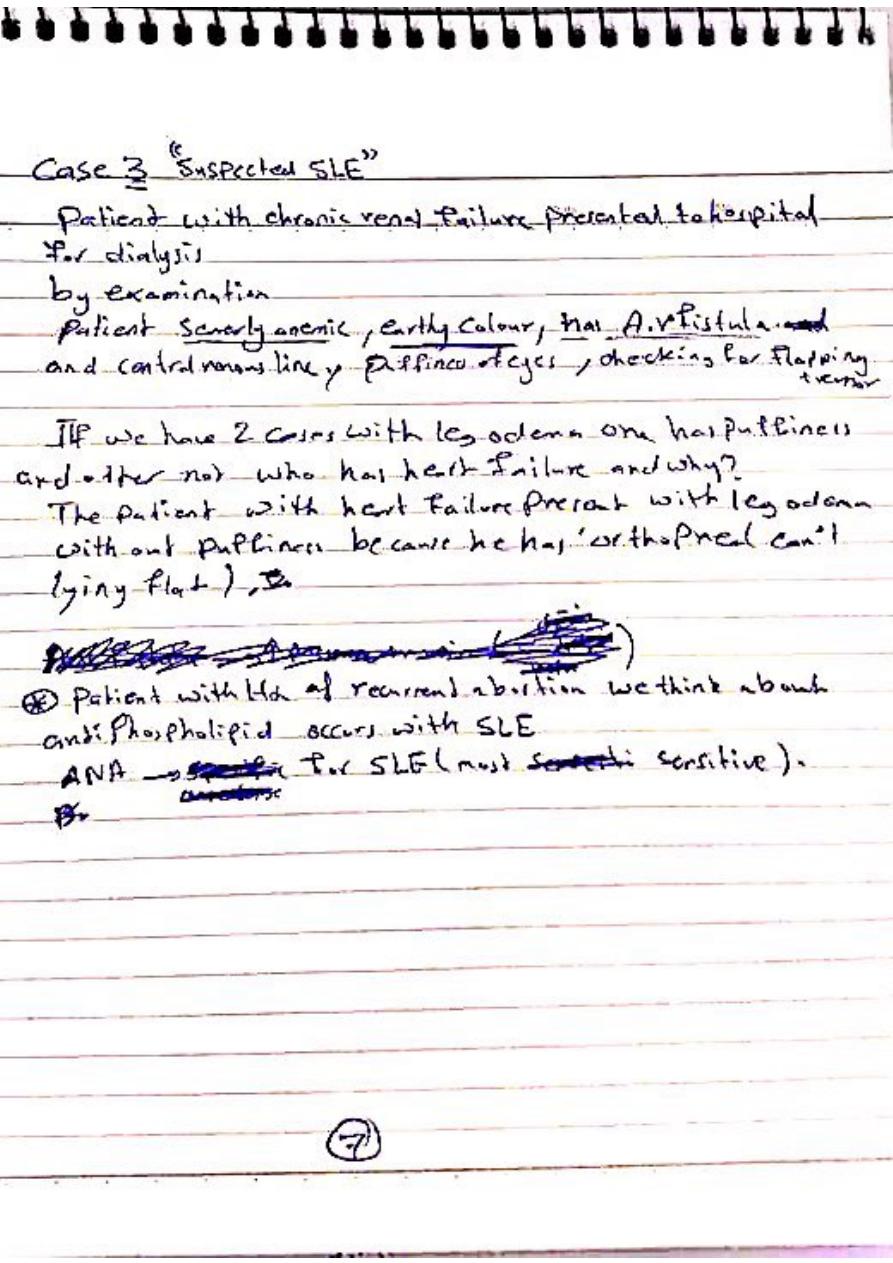 Case 3 "Suspected SLE"
Patient with chronic renal failure presented to hospital
for dialysis
by examination
patient Severly anemic, earthy colour, has A.v fistula
and central venous line, puffines of eyes, checking for flapping
tremor
If we have 2 cases with leg odema one has puffiness
and other not who has heart failure and why?
The patient with heart failure present with leg odema
without puffiness because he has (orthopnea) can't
lying flat),
* Patient with Hx of recurrent abortion we think about
antiphospholipid occurs with SLE
ANA → for SLE (most sensitive).
7